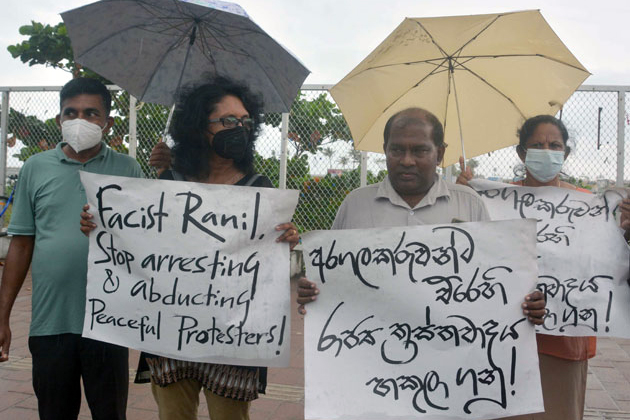 Facist Ranil,
Stop arresting
& abducting
Peaceful Protesters!
අරගලකරුවන්ට
එරෙහි
රාජ්‍ය ත්‍රස්තවාදය
හකුලා ගනු!
රෙහි
වාදය
ගනු!